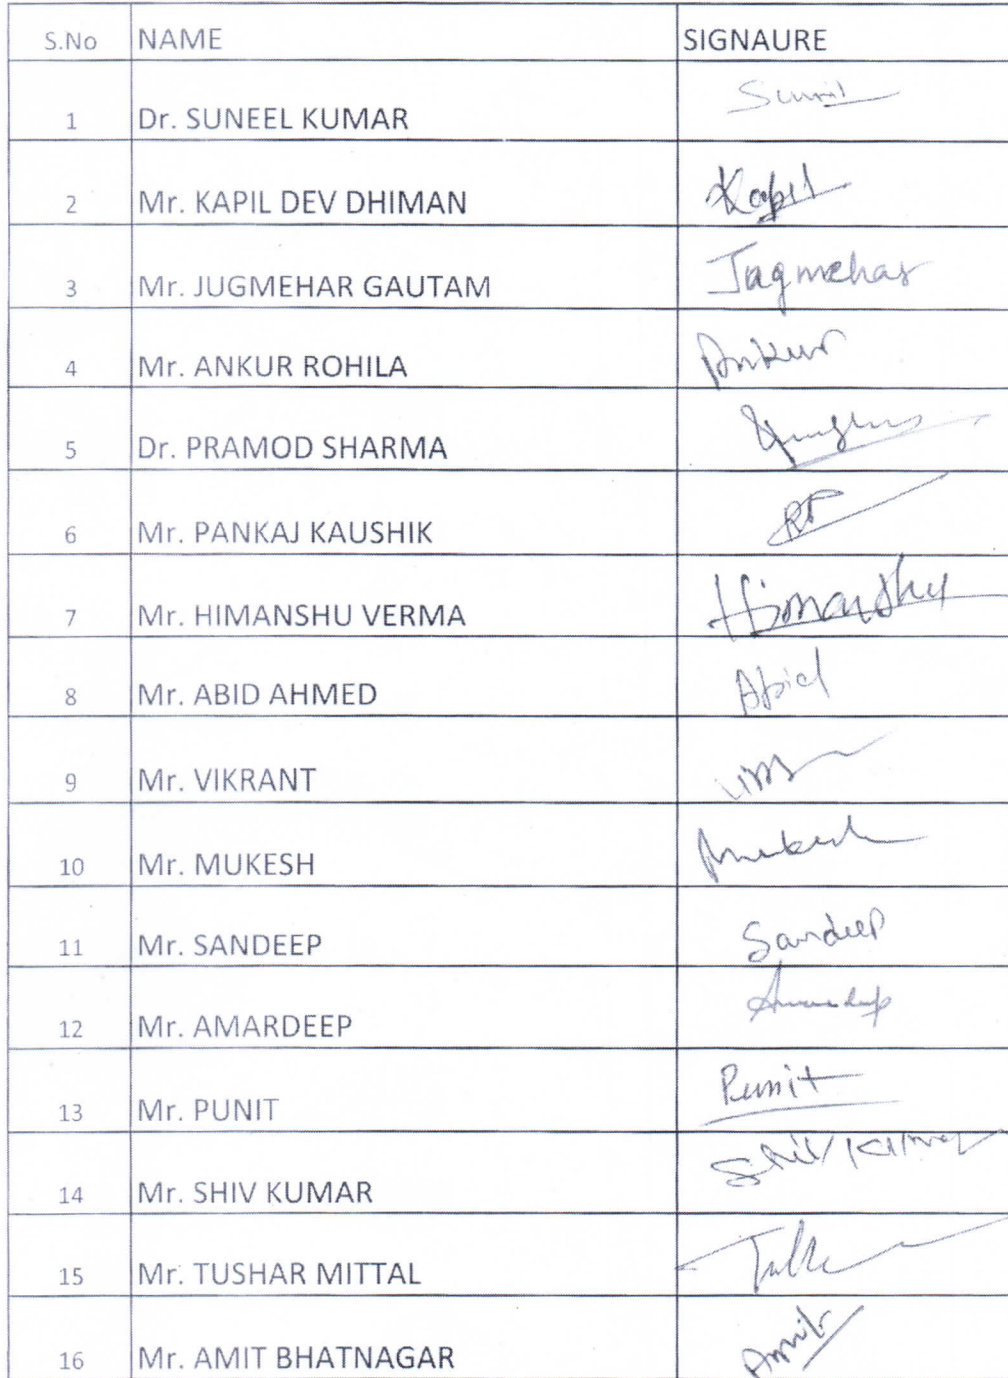 S.No NAME SIGNAURE
1 Dr. SUNEEL KUMAR
2 Mr. KAPIL DEV DHIMAN Kapil
3 Mr. JUGMEHAR GAUTAM Jagmehar
4 Mr. ANKUR ROHILA Ankur
5 Dr. PRAMOD SHARMA
6 Mr. PANKAJ KAUSHIK
7 Mr. HIMANSHU VERMA Himanshu
8 Mr. ABID AHMED Abid
9 Mr. VIKRANT
10 Mr. MUKESH Mukesh
11 Mr. SANDEEP Sandeep
12 Mr. AMARDEEP Amardeep
13 Mr. PUNIT Punit
14 Mr. SHIV KUMAR Shiv Kumar
15 Mr. TUSHAR MITTAL
16 Mr. AMIT BHATNAGAR Amit